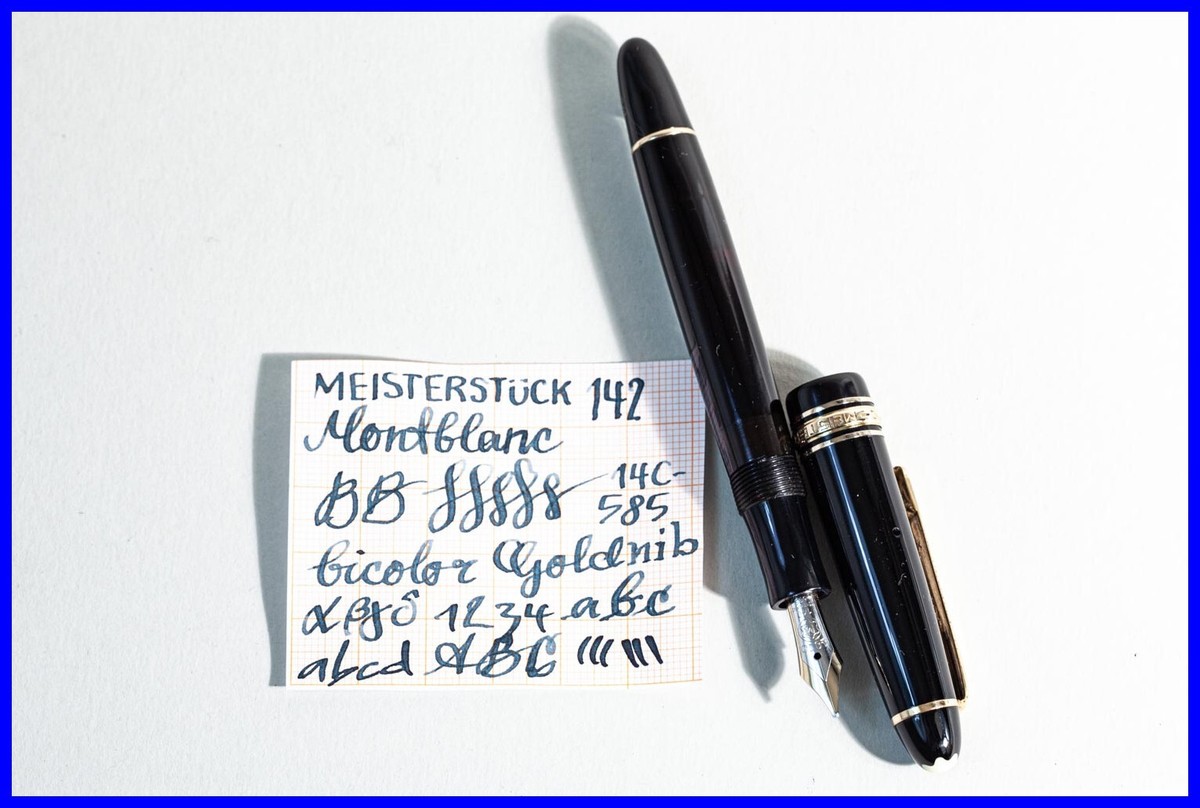 MEISTERSTÜCK 142
Montblanc
BB 14C-
585
bicolor Goldnib
αβγδ 1234 abc
abcd ABC